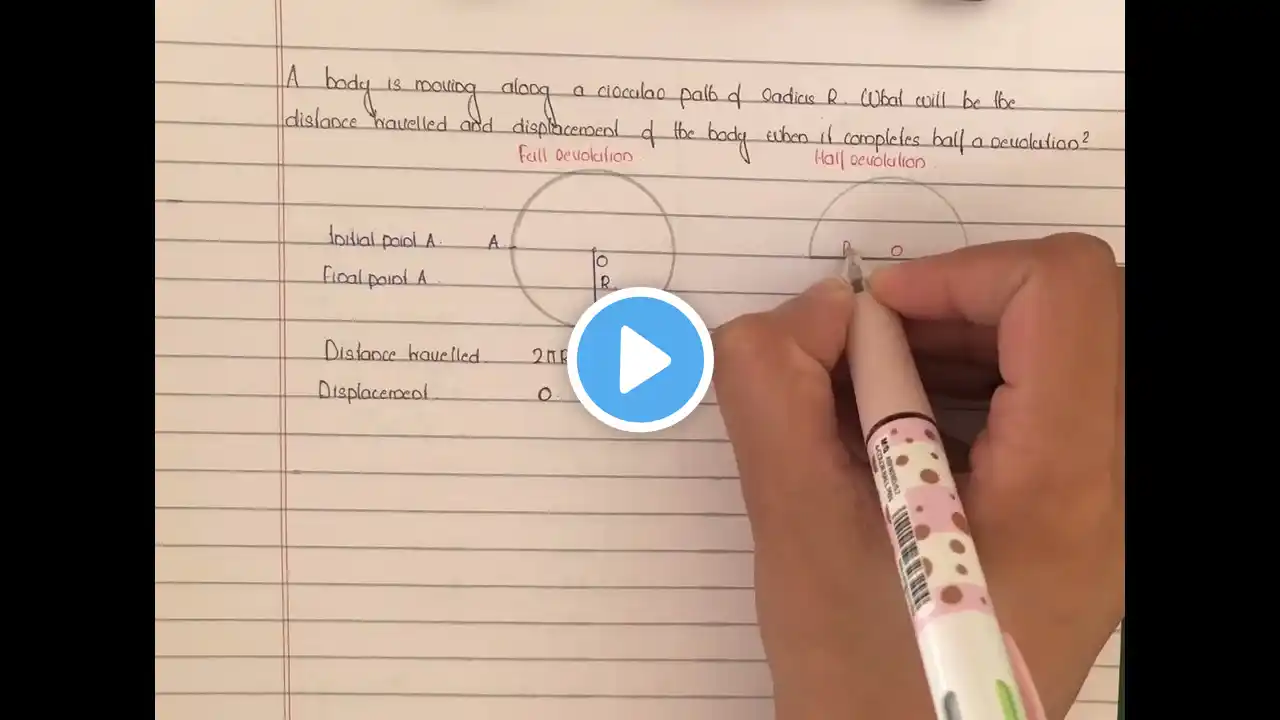 A body is moving along a circular path of radius R. What will be the
distance travelled and displacement of the body when it completes half a revolution?
Full revolution
Half revolution
Initial point A. A
Final point A
O
R
R O
Distance travelled 2πR
Displacement 0
M&G